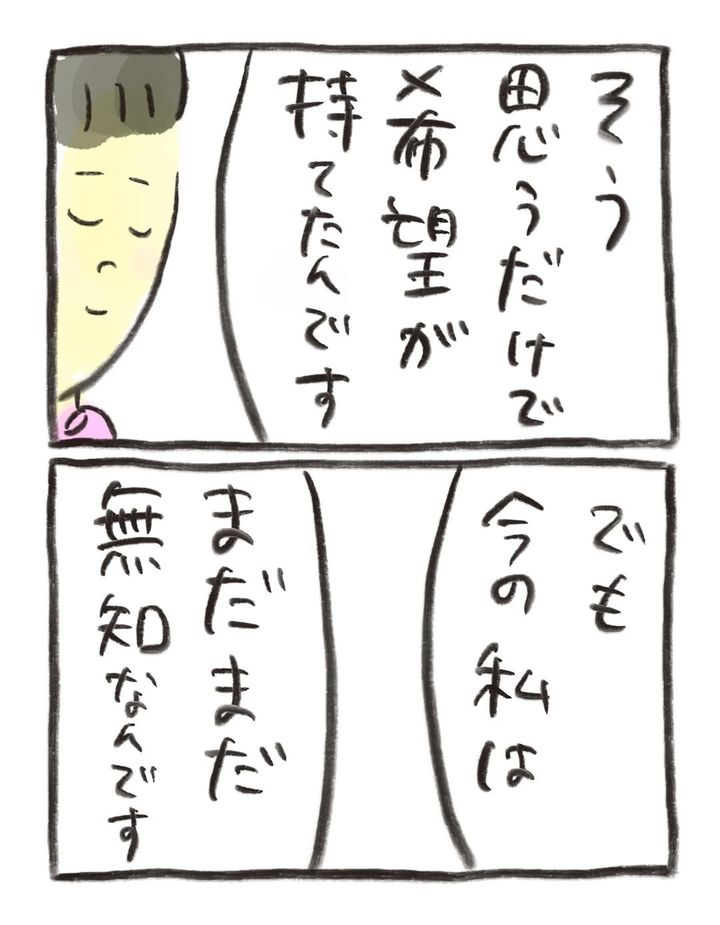 そう
思うだけで
希望が
持てたんです
でも
今の私は
まだまだ
無知なんです